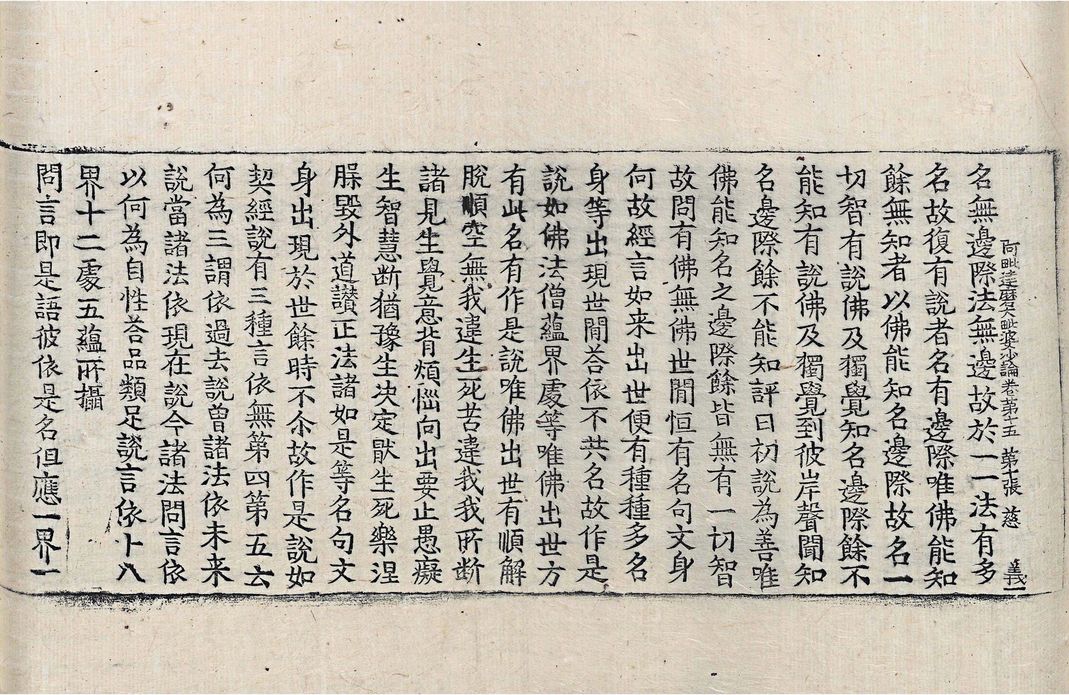 阿毗達磨大毗婆沙論卷第十五 第十張 慈 義一
名無邊際法無邊故於一一法有多
名故復有說者名有邊際唯佛能知
餘無知者以佛能知名邊際故名一
切智有說佛及獨覺知名邊際餘不
能知有說佛及獨覺到彼岸聲聞知
名邊際餘不能知評曰初說為善唯
佛能知名之邊際餘皆無有一切智
故問有佛無佛世閒恒有名句文身
何故經言如来出世便有種種多名
身等出現世閒荅依不共名故作是
說如佛法僧蘊界處等唯佛出世方
有此名有作是說唯佛出世有順解
脫順空無我違生死苦違我我所斷
諸見生覺意背煩惱向出要止愚癡
生智慧斷猶豫生决定猒生死樂涅
槃毀外道讚正法諸如是等名句文
身出現於世餘時不尒故作是說如
契經說有三種言依無第四第五云
何為三謂依過去說曾諸法依未来
說當諸法依現在說今諸法問言依
以何為自性荅品類足說言依十八
界十二處五蘊所攝
問言即是語彼依是名但應一界一